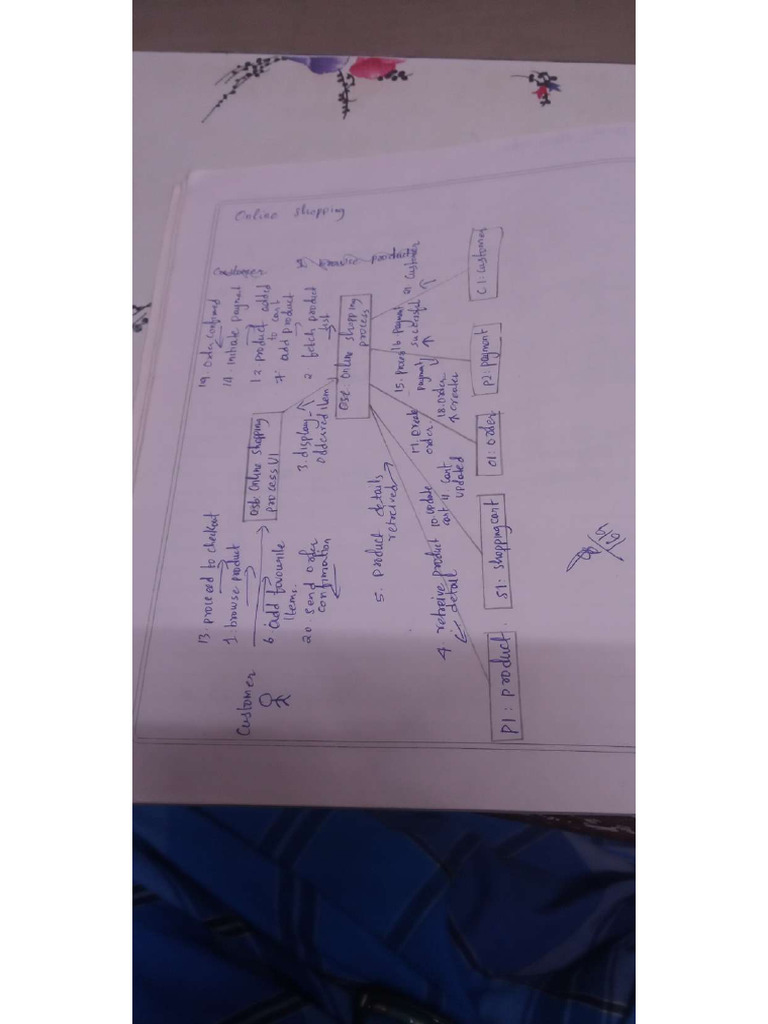 Online shopping
Customer
13. proceed to checkout
1. browse product
6. add favourite
items.
20. send order
confirmation
Online shopping
process UI
19. Order confirmed
14. initiate payment
12 product added
to cart
7. add product
2. fetch product
list
3. display
item
Online shopping
process
5. product details
retreived
4. retreive product
detail
10 update
cart
11. cart
updated
order.
18. order
creater
15.
payment
16 payment
successful
Customer
P1: product
S1: shopping cart
O1: order
P2: payment
C1: customer